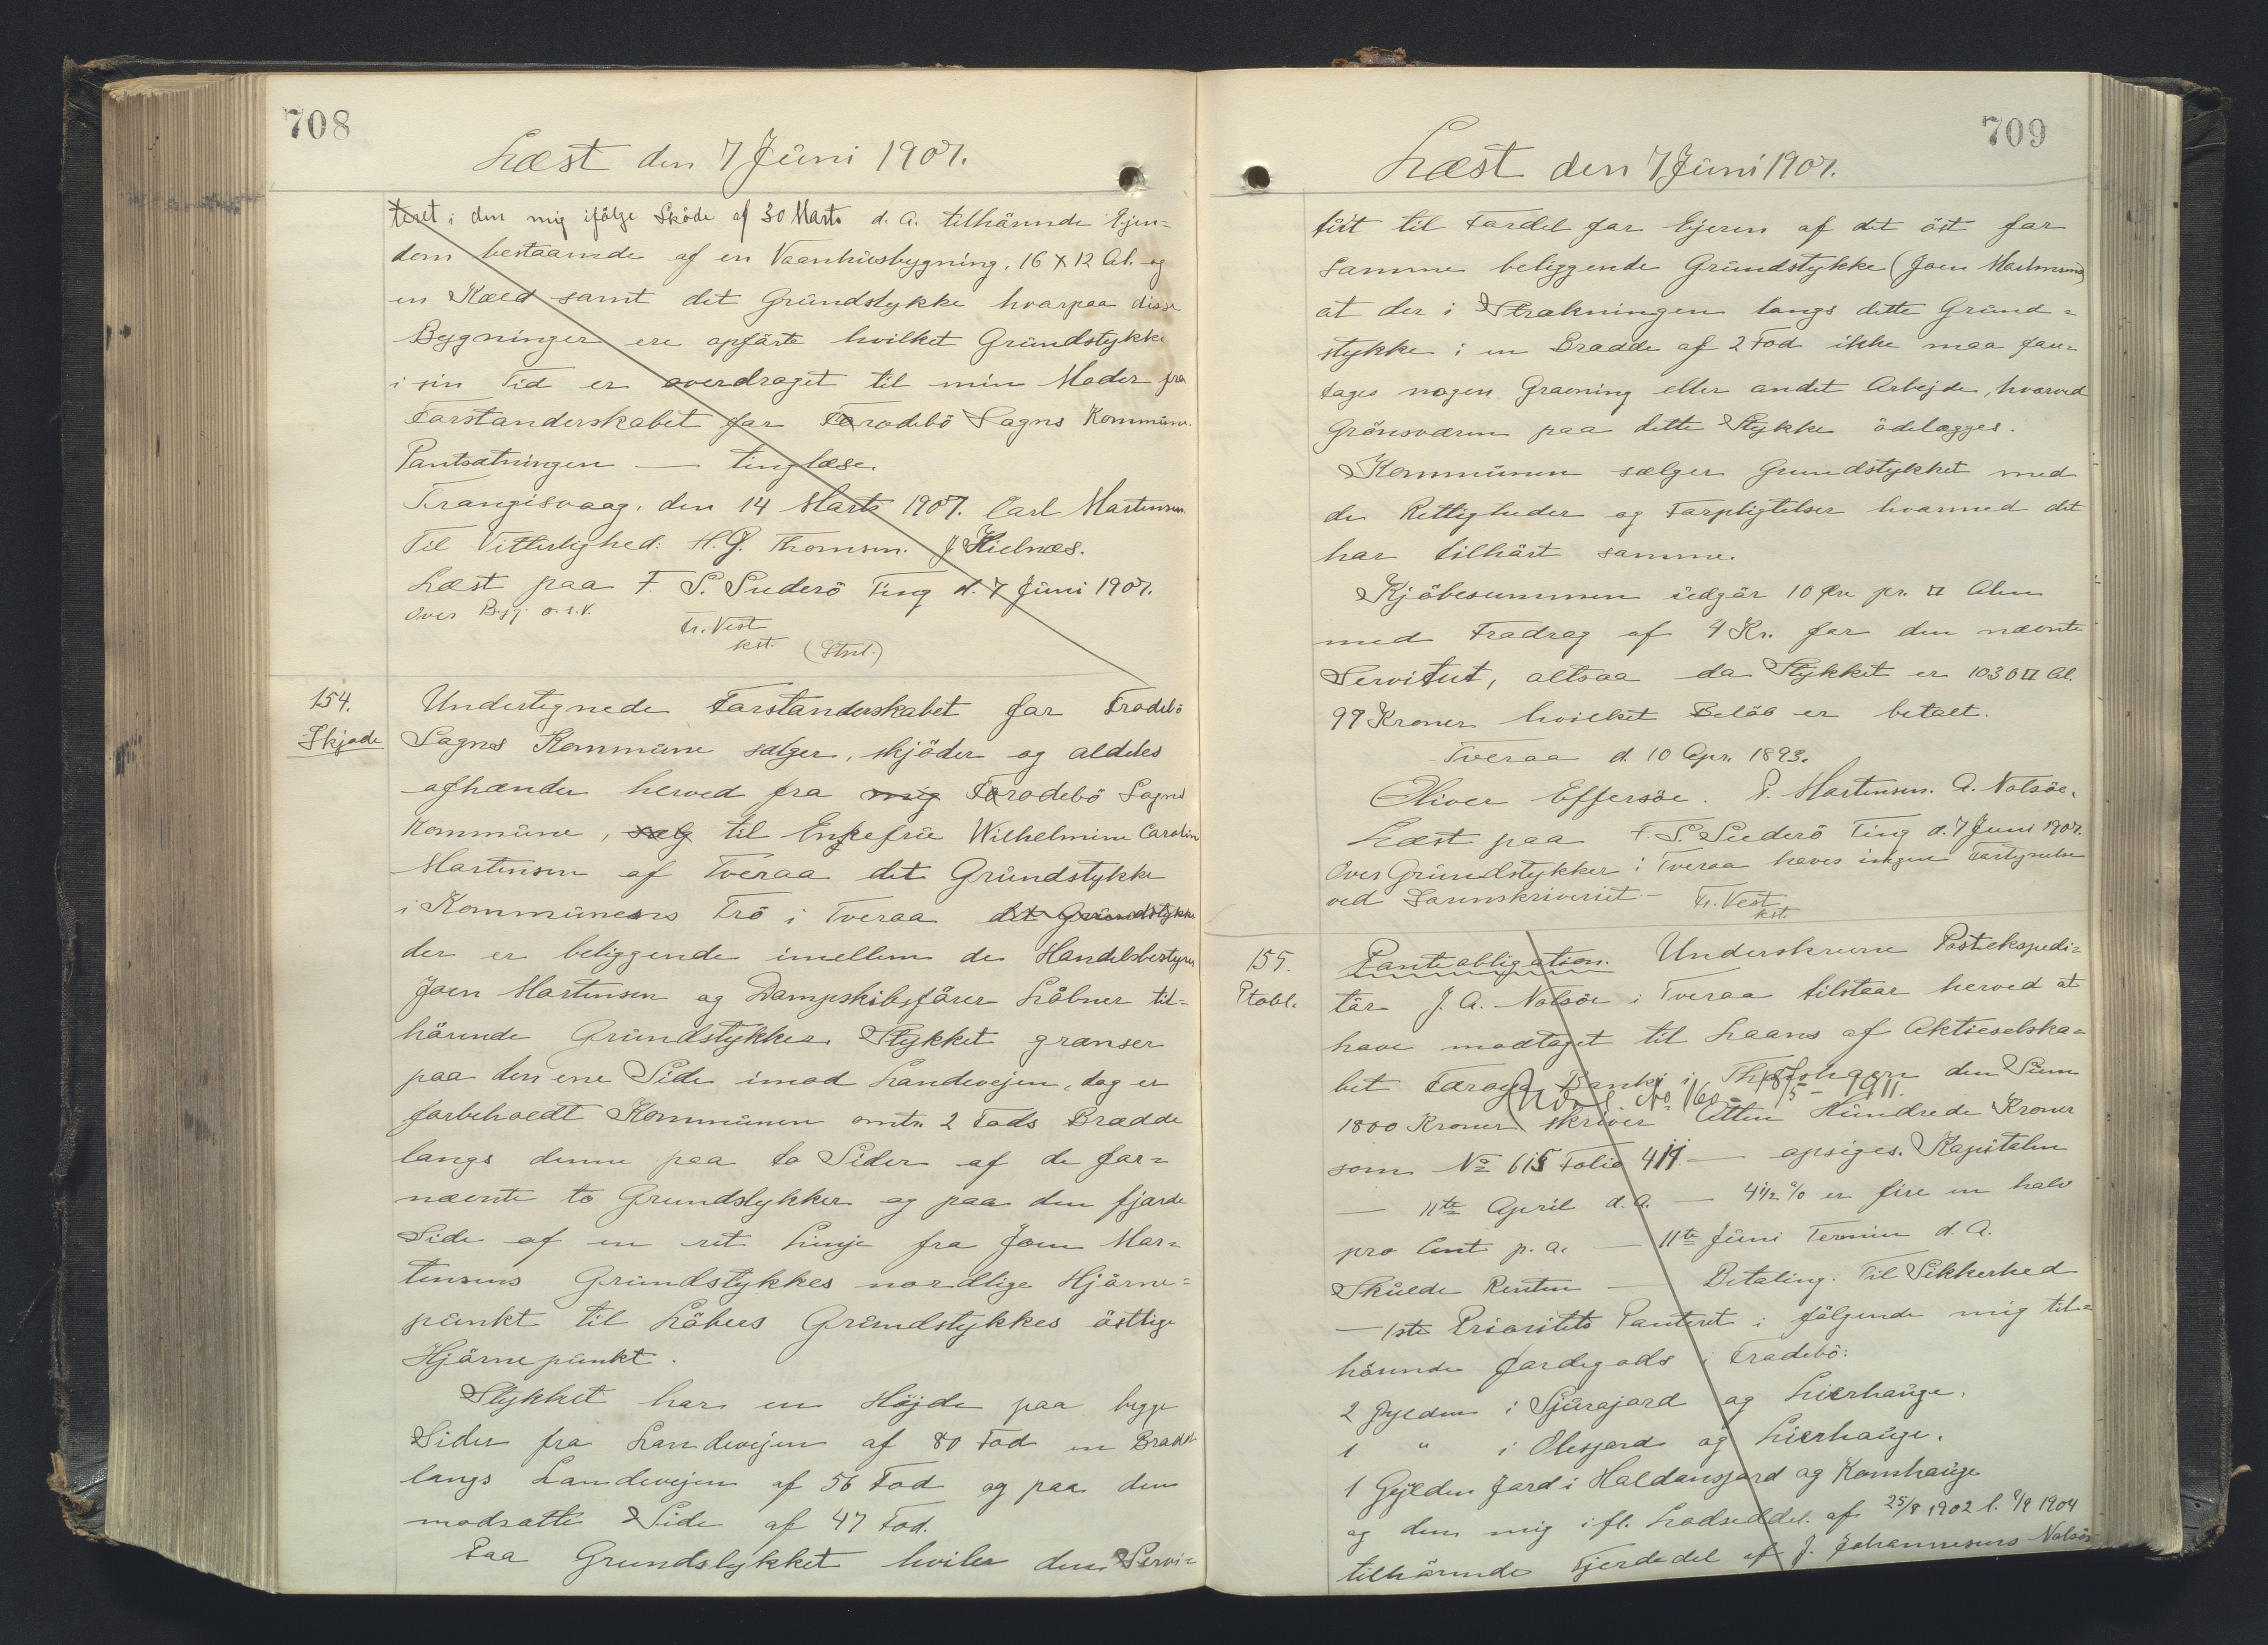 708
Læst den 7 Juni 1907.
teret i den mig ifölge Sköde af 30 Marts d. A. tilhörende Ejen=
dom bestaaende af en Vaanhusbygning, 16 x 12 Al. og
en Kæld samt det Grundstykke hvorpaa disse
Bygninger ere opförte hvilket Grundstykke
i sin Tid er overdraget til min Moder fra
Forstanderskabet for Frodebö Sogns Kommune.
Pantsætningen — tinglæse.
Trangisvaag, den 14 Marts 1907. Carl Mortensen
Til Vitterlighed: H. J. Thomsen. J Kielnæs.
Læst paa F. S. Suderö Ting d. 7 Juni 1907.
Over Byg. o.s.v.
Fr. Vest
kst. (Stpl.)
154.
Skjöde
Undertegnede Forstanderskabet for Frodebö
Sogns Kommune sælger, skjöder og aldeles
afhænder herved fra mig Frodebö Sogns
Kommune, salg til Enkefru Wilhelmine Caroline
Mortensen af Tveraa det Grundstykke
i Kommunens Trö i Tveraa det Grundstykke
der er beliggende imellem de Handelsbestyrer
Joen Mortensen og Dampskibsförer Löbner til=
hörende Grundstykker. Stykket grænser
paa den ene Side imod Landevejen, dog er
forbeholdt Kommunen omtr. 2 Fods Brædde
langs denne paa to Sider af de for=
nævnte to Grundstykker og paa den fjerde
Side af en ret Linje fra Joen Mor=
tensens Grundstykkes nordlige Hjörne=
punkt til Löbers Grundstykkes östlige
Hjörnepunkt.
Stykket har en Höjde paa begge
Sider fra Landevejen af 80 Fod en Brædde
langs Landevejen af 56 Fod og paa den
modsatte Side af 47 Fod.
Paa Grundstykket hviler den Servi=
709
Læst den 7 Juni 1907.
tut til Fordel for Ejeren af det öst for
samme beliggende Grundstykke (Joen Mortensens)
at der i Strækningen langs dette Grund=
stykke i en Brædde af 2 Fod ikke maa fore=
tages nogen Gravning eller andet Arbejde, hvorved
Grönsværen paa dette Stykke ödelægges.
Kommunen sælger Grundstykket med
de Rettigheder og Forpligtelser hvormed det
har tilhört samme.
Kjöbesummen udgör 10 Øre pr. □ Alen
med Fradrag af 4 Kr. for den nævnte
Servitut, altsaa da Stykket er 1030 □ Al.
99 Kroner hvilket Belöb er betalt.
Tveraa d. 10 Apr. 1893.
Oliver Effersöe. P. Mortensen. A. Nolsöe.
Læst paa F. S. Suderö Ting d. 7 Juni 1907.
Over Grundstykker i Tveraa haves ingen Fortegnelse
ved Sorenskriveriet - Fr. Vest
kst.
155.
Ptobl.
Panteobligation. Underskrevne Postekspedi=
tör J. A. Nolsöe i Tveraa tilstaar herved at
have modtaget til Laans af Aktieselska=
bet Færöya Banki i Thorshavn den Sum
Udsl. No. 160 - 18/5 - 1911.
1800 Kroner skriver Atten Hundrede Kroner
som No 615 Folio 411 — opsiges. Kapitalen
— 11te April d. A. — 4½ % er fire en halv
pro Cent p. a. — 11te Juni Termin d. A.
Skulde Renten — Betaling. Til Sikkerhed
— 1ste Prioritets Panteret i fölgende mig til=
hörende Jordegods i Frodebö:
2 Gylden i Sjurajord og Lierhauge.
1 " i Olesjord og Lierhauge.
1 Gylden Jord i Haldansjord og Kornhauge
og den mig ifl. Lodseddel af 25/8 1902 l. 9/9 1904
tilhörende Fjerdedel af J. Johannesens Nolsös